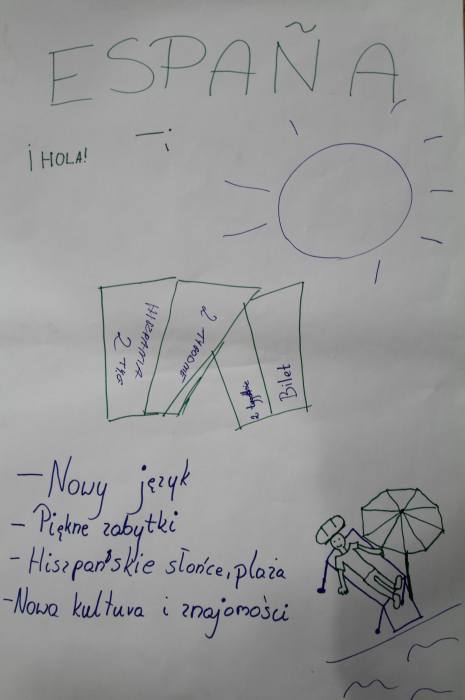 ESPAÑA
¡HOLA!
HISZPANIA
2 TYG
2 TYGODNIE
2 tygodnie
Bilet
- Nowy język
- Piękne zabytki
- Hiszpańskie słońce, plaża
- Nowa kultura i znajomości